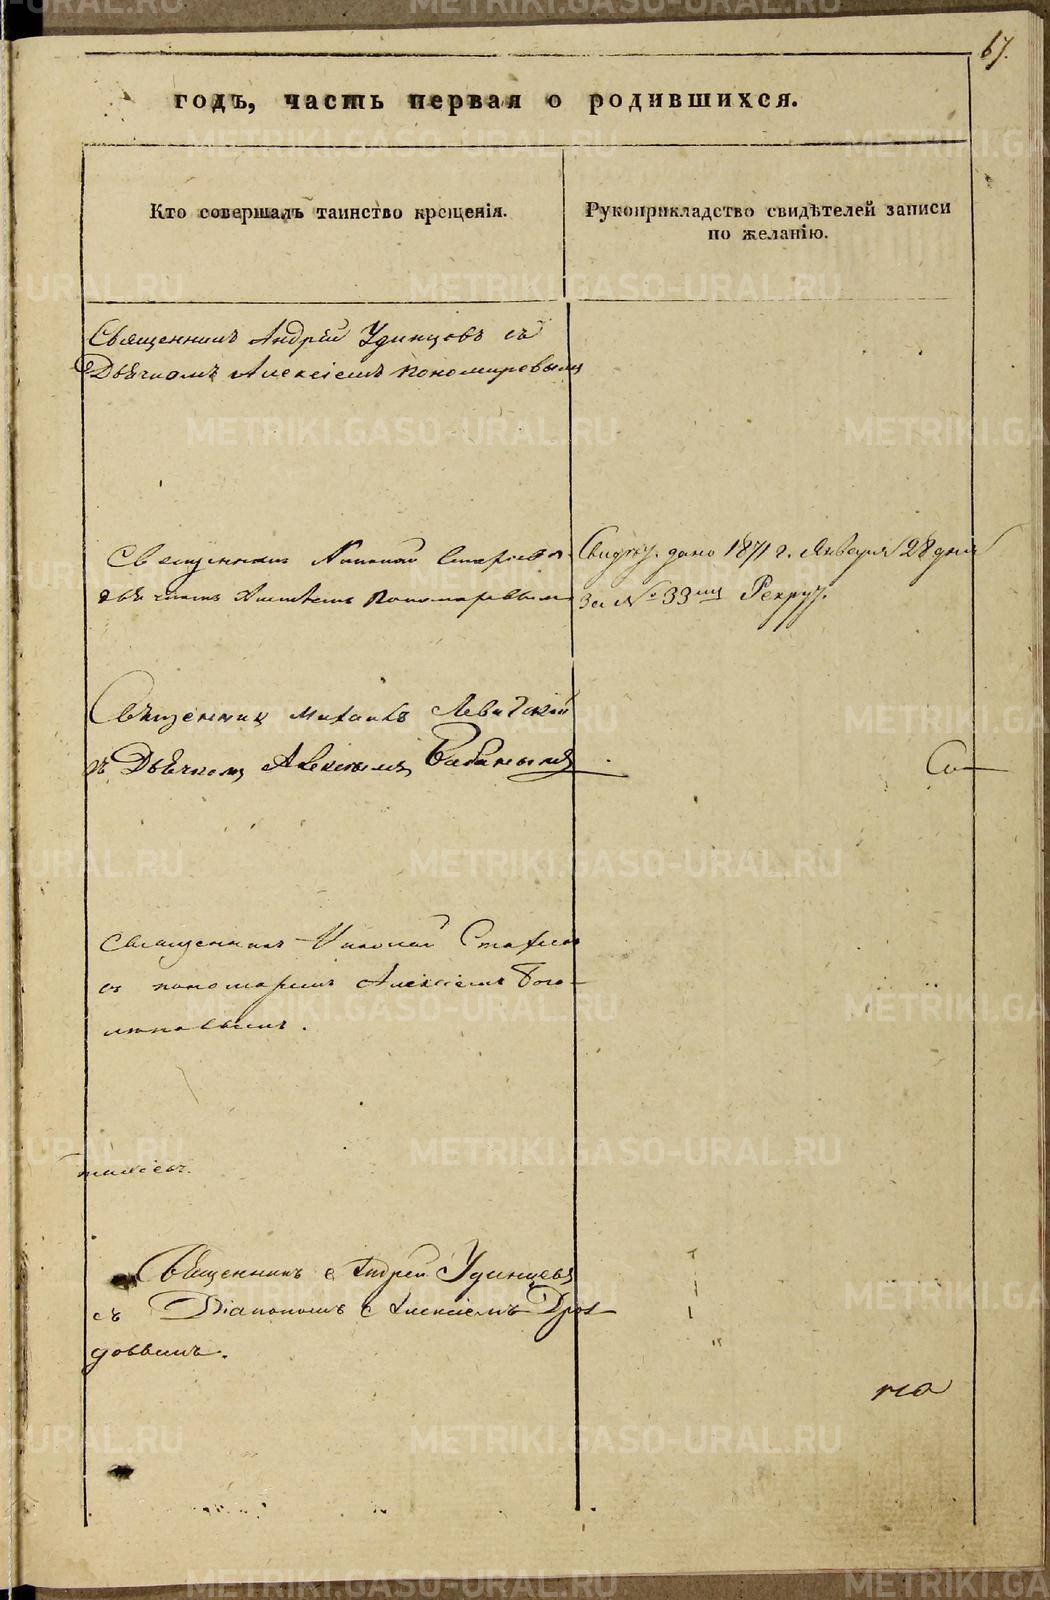 67.
годъ, часть первая о родившихся.
Кто совершалъ таинство крещенія.
Рукоприкладство свидѣтелей записи
по желанію.
Священникъ Андрей Удинцовъ съ
Дьячкомъ Алексіемъ Пономаревымъ
Священникъ Николай
дьячкомъ Пономаревымъ
дано 1871 г. Января 28 дня
За № 33
Священникъ Михаилъ Левитскій
съ Дьячкомъ Бабинымъ
Со
Священникъ Николай
съ пономаремъ Алексіемъ Бого-
Священникъ Андрей Удинцевъ
съ Діакономъ Алексіемъ Дроз
довымъ.
на
METRIKI.GASO-URAL.RU